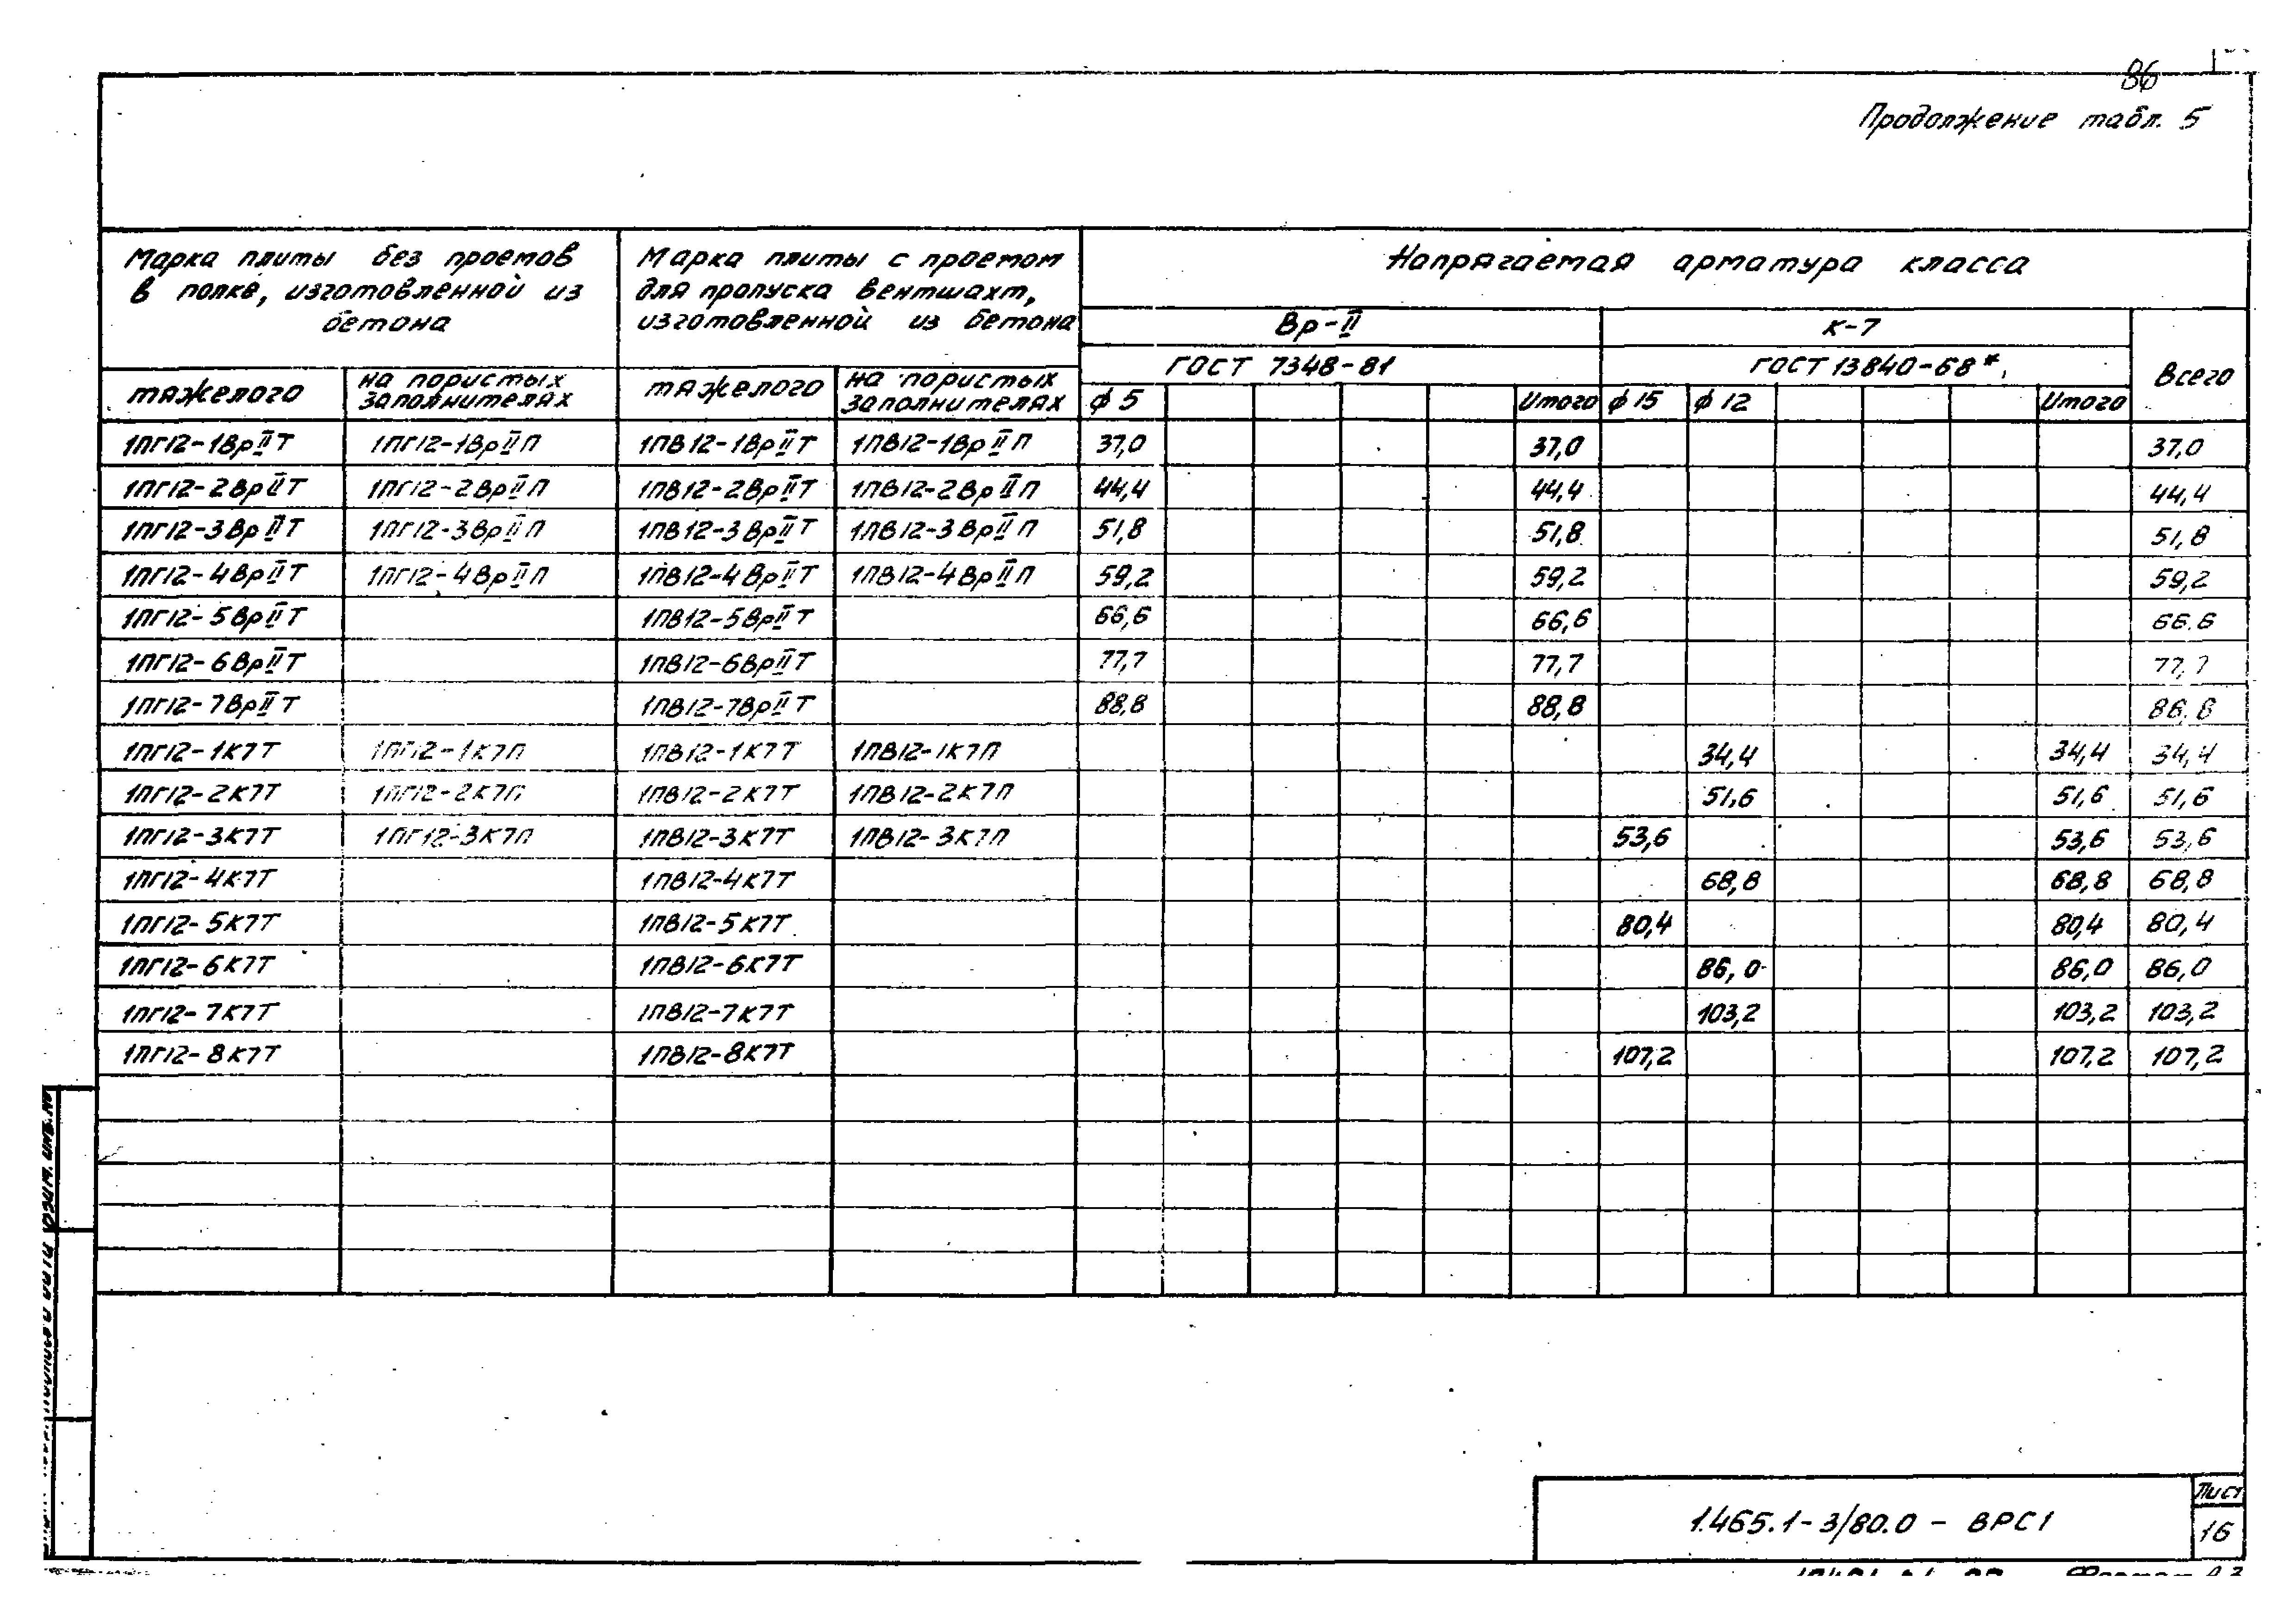 86
Продолжение табл. 5
Марка плиты без проемов
в полке, изготовленной из
бетона
Марка плиты с проемом
для пропуска вентшахт,
изготовленной из бетона
Напрягаемая арматура класса
Вр-II
К-7
ГОСТ 7348-81
ГОСТ 13840-68*
Всего
тяжелого
на пористых
заполнителях
тяжелого
на пористых
заполнителях
ф 5 Итого ф 15 ф 12 Итого
1ПГ12-1ВрIIТ 1ПГ12-1ВрIIП 1ПВ12-1ВрIIТ 1ПВ12-1ВрIIП 37,0 37,0 37,0
1ПГ12-2ВрIIТ 1ПГ12-2ВрIIП 1ПВ12-2ВрIIТ 1ПВ12-2ВрIIП 44,4 44,4 44,4
1ПГ12-3ВрIIТ 1ПГ12-3ВрIIП 1ПВ12-3ВрIIТ 1ПВ12-3ВрIIП 51,8 51,8 51,8
1ПГ12-4ВрIIТ 1ПГ12-4ВрIIП 1ПВ12-4ВрIIТ 1ПВ12-4ВрIIП 59,2 59,2 59,2
1ПГ12-5ВрIIТ 1ПВ12-5ВрIIТ 66,6 66,6 66,6
1ПГ12-6ВрIIТ 1ПВ12-6ВрIIТ 77,7 77,7 77,7
1ПГ12-7ВрIIТ 1ПВ12-7ВрIIТ 88,8 88,8 88,8
1ПГ12-1К7Т 1ПГ12-1К7П 1ПВ12-1К7Т 1ПВ12-1К7П 34,4 34,4 34,4
1ПГ12-2К7Т 1ПГ12-2К7П 1ПВ12-2К7Т 1ПВ12-2К7П 51,6 51,6 51,6
1ПГ12-3К7Т 1ПГ12-3К7П 1ПВ12-3К7Т 1ПВ12-3К7П 53,6 53,6 53,6
1ПГ12-4К7Т 1ПВ12-4К7Т 68,8 68,8 68,8
1ПГ12-5К7Т 1ПВ12-5К7Т 80,4 80,4 80,4
1ПГ12-6К7Т 1ПВ12-6К7Т 86,0 86,0 86,0
1ПГ12-7К7Т 1ПВ12-7К7Т 103,2 103,2 103,2
1ПГ12-8К7Т 1ПВ12-8К7Т 107,2 107,2 107,2
1.465.1-3/80.0 - ВРС1
Лист
16